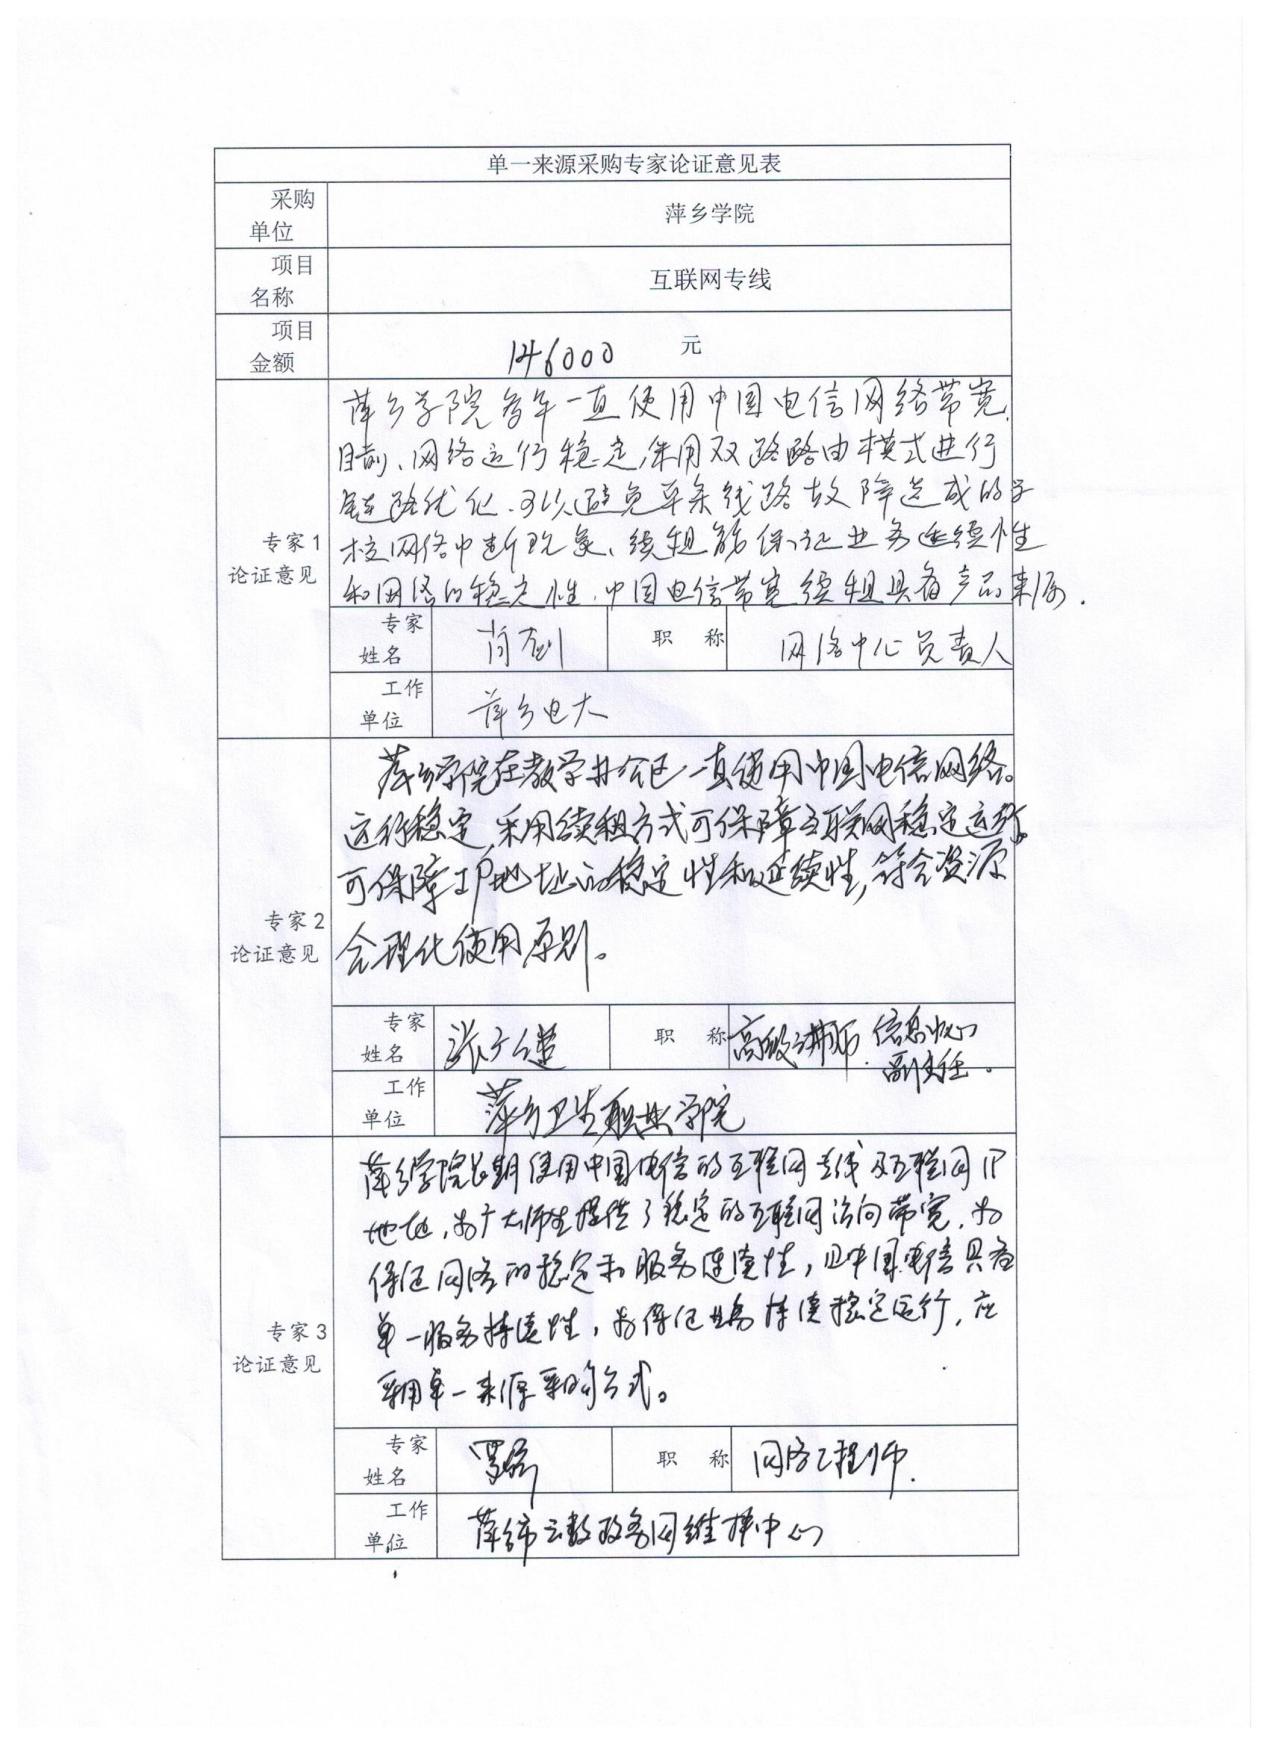 单一来源采购专家论证意见表
采购
单位
萍乡学院
项目
名称
互联网专线
项目
金额
146000 元
专家1
论证意见
萍乡学院多年一直使用中国电信网络带宽,
目前、网络运行稳定,采用双路路由模式进行
链路优化.可以避免单条线路故障造成的学
校网络中断现象、续租能保证业务连续性
和网络的稳定性.中国电信带宽续租具备产品来源.
专家
姓名
肖剑
职 称
网络中心负责人
工作
单位
萍乡电大
专家2
论证意见
萍乡学院在教学办公区一直使用中国电信网络。
运行稳定,采用续租方式可保障互联网稳定运行。
可保障IP地址的稳定性和延续性,符合资源
合理化使用原则。
专家
姓名
张
职 称
高级讲师.信息中心
副主任.
工作
单位
萍乡卫生职业学院
专家3
论证意见
萍乡学院长期使用中国电信的互联网专线及互联网IP
地址,为广大师生提供了稳定的互联网访问带宽,为
保证网络的稳定和服务连续性,且中国电信具备
单一服务持续性,为保证业务持续稳定运行,应
采用单一来源采购方式。
专家
姓名
职 称
网络工程师.
工作
单位
萍乡市云数政务网维护中心